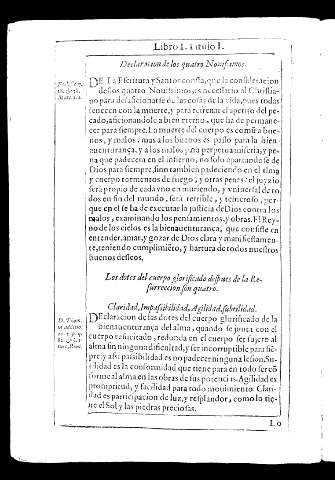 Libro I. Titulo I.
Declaracion de los quatro Nouissimos.
DE La Escritura y Santos consta, que la consideracion
destos quatro Nouissimos, es necessario al Christia-
no para desaficionarse de las cosas de la vida, pues todas
fenecen con la muerte, y para refrenar el apetito del pe-
cado, aficionandole a bien eterno, que ha de permane-
cer para siempre. La muerte del cuerpo es comũ a bue-
nos, y malos: mas a los buenos es passo para la bien-
auenturança, y a los malos para perpetua miseria, y pe-
na que padecera en el infierno, no solo apartandose de
Dios para siempre, sino tambien padeciendo en el alma
y cuerpo tormentos de fuego, y otras penas: el juyzio
serà propio de cada vno en muriendo, y vniuersal de to
dos en fin del mundo, serà terrible, y temeroso, por-
que en el se ha de executar la justicia de Dios contra los
malos, examinando los pensamientos, y obras. El Rey-
no de los cielos es la bienauenturança, que consiste en
entender, amar, y gozar de Dios clara y manifiestamen-
te, teniendo cumplimiẽto, y hartura de todos nuestros
buenos desseos.
Los dotes del cuerpo glorificado despues de la Re-
surreccion son quatro.
Claridad, Impassibilidad, Agilidad, subtilidad.
D. Thom.
in additio.
DEclaracion de las dotes del cuerpo glorificado de la
bienauenturança del alma, quando se junta con el
cuerpo resucitado, redunda en el cuerpo ser sujeto al
alma sin ninguna dificultad, y ser incorruptible para siẽ-
pre y assi passibilidad es no padecer ninguna lesion. Su-
tilidad es la conformidad que tiene para en todo ser cõ
forme al alma en las obras de sus potencias. Agilidad es
promptitud, y facilidad para todo mouimiento. Clari-
dad es participacion de luz, y resplandor, como lo tie-
ne el Sol y las piedras preciosas.